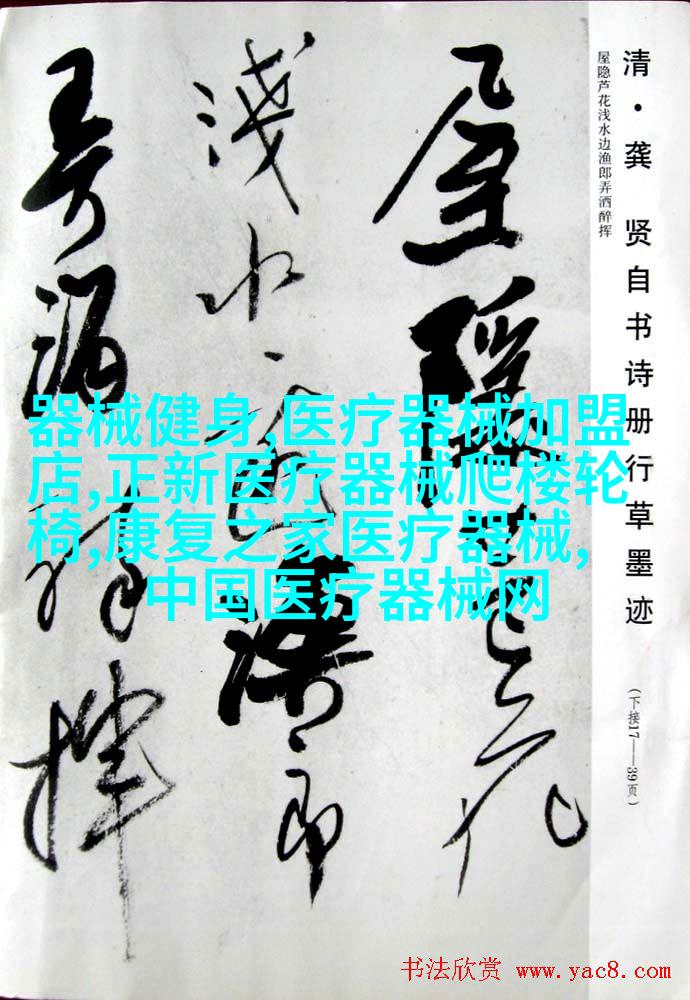 清·龚 贤自书诗册行草墨迹
（下接17——39页）
屋隐芦花浅水边渔郎弄洒醉挥
屋隐芦花
浅水边渔郎
弄酒醉挥
器械健身,医疗器械加盟
店,正新医疗器械爬楼轮
椅,康复之家医疗器械,
中国医疗器械网
书法欣赏 www.yac8.com